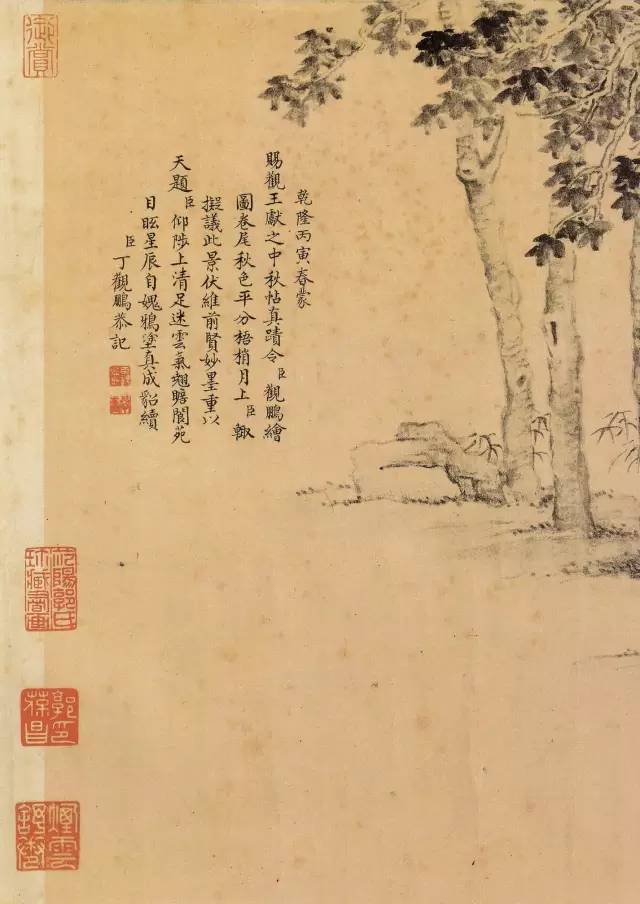 乾隆丙寅春蒙
賜觀王獻之中秋帖真蹟令臣觀鵬繪
圖卷尾秋色平分梧梢月上臣輙
擬議此景伏維前賢妙墨重以
天題臣仰陟上清足迷雲氣翹瞻閬苑
目眩星辰自媿鴉塗真成貂續
臣丁觀鵬恭記
御賞
沈陽郭氏
珎藏書畫
郭印
葆昌